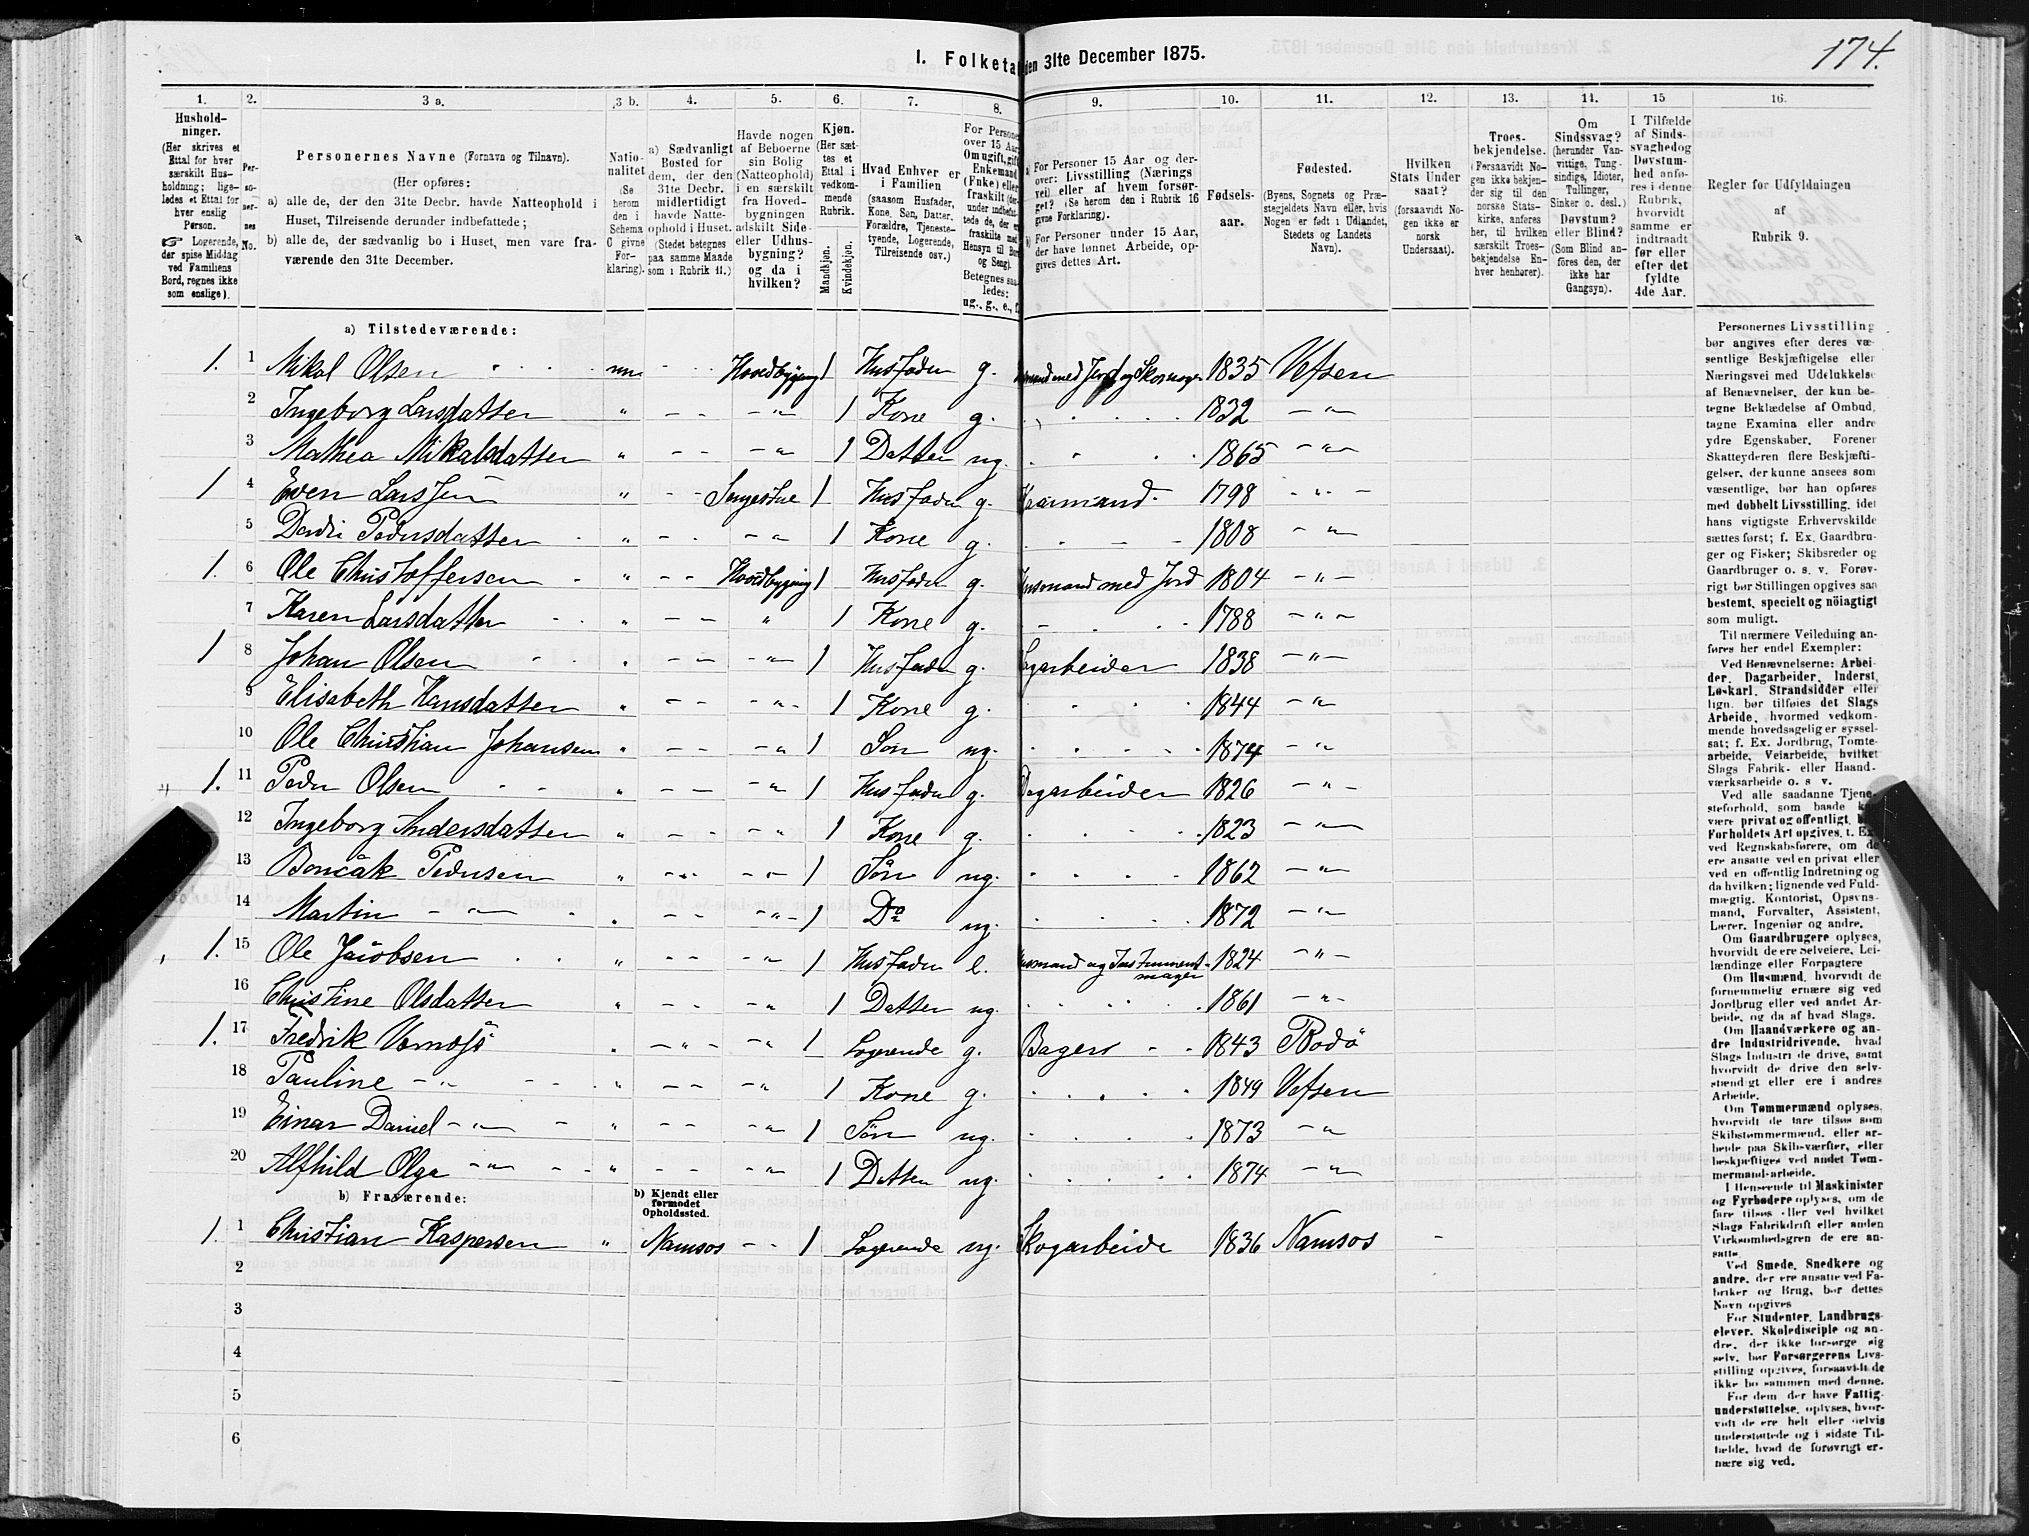 174.
I. Folketa den 31te December 1875.
1. 2. 3 a. 3 b. 4. 5. 6. 7. 8. 9. 10. 11. 12. 13. 14. 15 16.
Hushold-
ninger.
(Her skrives et
Ettal for hver
særskilt Hus-
holdning; lige-
ledes et Ettal for
hver enslig
Person.
☞ Logerende,
der spise Middag
ved Familiens
Bord, regnes ikke
som enslige).
Per-
so-
ner-
nes
No.
Personernes Navne (Fornavn og Tilnavn).
(Her opføres:
a) alle de, der den 31te Decbr. havde Natteophold i
Huset, Tilreisende derunder indbefattede;
b) alle de, der sædvanlig bo i Huset, men vare fra-
værende den 31te December.
Natio-
nalitet
(Se
herom
den i
Schema
C givne
For-
klaring).
a) Sædvanligt
Bosted for
dem, der den
31te Decbr.
midlertidigt
havde Natte-
ophold i Huset.
(Stedet betegnes
paa samme Maade
som i Rubrik 11.)
Havde nogen
af Beboerne
sin Bolig
(Natteophold)
i en særskilt
fra Hoved-
bygningen
adskilt Side-
eller Udhus-
bygning?
og da i
hvilken?
Kjøn.
(Her sæt-
tes et
Ettal i
vedkom-
mende
Rubrik.
Mandkjøn.
Kvindekjøn.
Hvad Enhver er
i Familien
(saasom Husfader,
Kone, Søn, Datter,
Forældre, Tjeneste-
tyende, Logerende,
Tilreisende osv.)
For Persone
over 15 Aar
Om ugift, gift
Enkemand
(Enke) eller
fraskilt
Betegnes saa-
ledes:
ug., g., e., f.
a) For Personer 15 Aar og der-
over: Livsstilling (Nærings
vei) eller af hvem forsør-
get? (Se herom den i Rubrik 16
givne Forklaring).
b) For Personer under 15 Aar,
der have lønnet Arbeide, op-
gives dettes Art.
Fødsels-
aar.
Fødested.
(Byens, Sognets og Præ-
stegjeldets Navn eller, hvis
Nogen er født i Udlandet,
Stedets og Landets
Navn).
Hvilken
Stats Under
saat?
(forsaavidt No-
gen ikke er
norsk
Undersaat).
Troes-
bekjendelse.
(Forsaavidt No-
gen ikke bekjen-
der sig til den
norske Stats-
kirke, anføres
her, til hvilken
særskilt Troes-
bekjendelse En-
hver henhører).
Om
Sindssvag?
(herunder Van-
vittige, Tung-
sindige, Idioter,
Tullinger,
Sinker o. desl.)
Døvstum?
eller Blind?
(Som Blind an-
føres den, der
ikke har
Gangsyn).
I Tilfælde
af Sinds-
svaghed og
Døvstum-
hed anfø-
res i denne
Rubrik,
hvorvidt
samme er
indtraadt
før eller
efter det
fyldte
4de Aar.
Regler for Udfyldningen
af
Rubrik 9.
a) Tilstedeværende:
1. 1 Mikal Olsen nn Hovedbygning 1 Husfader g. 1835 Vefsen
2 Ingeborg Larsdatter " 1 Kone g. 1832 "
3 Mathea Mikalsdatter " 1 Datter ug. 1865 "
1 4 Even Larssen " 1 Husfader g. Kaarmand 1798 "
5 Pedersdatter " 1 Kone g. 1808 "
1. 6 Ole Christoffersen " Hovedbygning 1 Husfader g. Husmand med Jord 1804 "
7 Karen Larsdatter " " 1 Kone g. 1788 "
1 8 Johan Olsen " " 1 Husfader g. 1838 "
9 Elisabeth Hansdatter " " 1 Kone g. 1844 "
10 Ole Christian Johansen " " 1 Søn ug. 1874 "
1. 11 Peder Olsen " " 1 Husfader g. Dagarbeider 1826 "
12 Ingeborg Andersdatter " " 1 Kone g. 1823 "
13 Pedersen " " 1 Søn ug. 1862 "
14 Martin " " " 1 Do ug. 1872 "
1. 15 Ole Jacobsen " " 1 Husfader e. Husmand og Instrument-
mager 1824 "
16 Christine Olsdatter " " 1 Datter ug. 1861 "
1. 17 Fredrik " " 1 Logerende g. Bager 1843 Bodö
18 Pauline " " " 1 Kone g. 1849 Vefsen
19 Einar Daniel " " " 1 Søn ug. 1873 "
20 Alfhild Olga " " " 1 Datter ug. 1874 "
b) Fraværende:
b) Kjendt eller
formodet
Opholdssted.
1. 1 Christian Kaspersen " Namsos 1 Logerende ug. Skogarbeide 1836 Namsos
2
3
4
5
6
Personernes Livsstilling
bør angives efter deres væ-
sentlige Beskjæftigelse eller
Næringsvei med Udelukkelse
af Benævnelser, der kun be-
tegne Beklædelse af Ombud,
tagne Examina eller andre
ydre Egenskaber. Forener
Skatteyderen flere Beskjæfti-
gelser, der kunne ansees som
væsentlige, bør han opføres
med dobbelt Livsstilling, idet
hans vigtigste Erhvervskilde
sættes først; f. Ex. Gaardbru-
ger og Fisker; Skibsreder og
Gaardbruger o. s. v. Forøv-
rigt bør Stillingen opgives saa
bestemt, specielt og nöiagtigt
som muligt.
Til nærmere Veiledning an-
føres her endel Exempler:
Ved Benævnelserne: Arbei-
der, Dagarbeider, Inderst,
Løskarl, Strandsidder eller
lign. bør tilføies det Slags
Arbeide, hvormed vedkom-
mende hovedsagelig er syssel-
sat; f. Ex. Jordbrug, Tomte-
arbeide, Veiarbeide, hvilket
Slags Fabrik- eller Haand-
værksarbeide o. s. v.
Ved alle saadanne Tjene-
steforhold, som baade
være privat og offentligt,
Forholdets Art opgives, t. Ex.
ved Regnskabsførere, om de
ere ansatte ved en privat eller
ved en offentlig Indretning og
da hvilken; lignende ved Fuld-
mægtig, Kontorist, Opsyns-
mand, Forvalter, Assistent,
Lærer, Ingeniør og andre.
Om Gaardbrugere oplyses,
hvorvidt de ere Selveiere, Lei-
lændinge eller Forpagtere
Om Husmænd, hvorvidt de
fornemmelig ernære sig ved
Jordbrug eller ved andet Ar-
beide, og da af hvad Slags.
Om Haandværkere og an-
dre Industridrivende, hvad
Slags Industri de drive, samt
hvorvidt de drive den selv-
stændigt eller ere i andres
Arbeide.
Om Tømmermænd oplyses,
hvorvidt de fare tilsøs som
Skibstømmermænd, eller ar-
beide paa Skibsværfter, eller
beskjæftiges ved andet Tøm-
mermandsarbeide.
I Henseende til Maskinister
og Fyrbødere oplyses, om de
fare tilsøs eller ved hvilket
Slags Fabrikdrift eller anden
Virksomhedsgren de ere an-
satte.
Ved Smede, Snedkere og
andre, der ere ansatte ved Fa-
briker og Brug, bør dettes
Navn opgives
For Studenter, Landbrugs-
elever, Skoledisciple og an-
dre, der ikke forsørge sig
selv, bør Forsørgerens Livs-
stilling opgives, forsaavidt de
ikke bo sammen med denne.
For dem, der have Fattig-
understøttelse, oplyses, hvor-
vidt de ere helt eller delvis
understøttede og i sidste Til-
fælde, hvad de forøvrigt er-
nære sig ved.